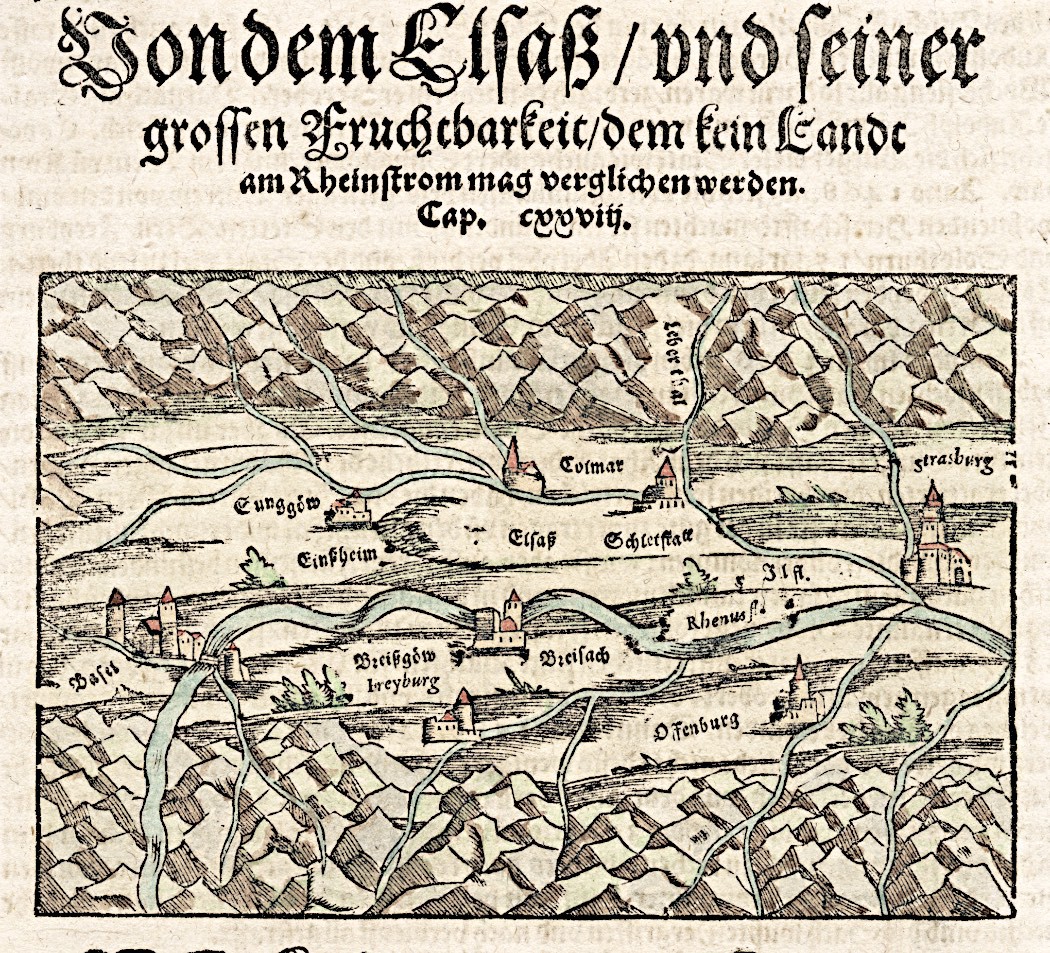 Von dem Elsaß / vnd seiner
grossen Fruchtbarkeit/dem kein Landt
am Rheinstrom mag verglichen werden.
Cap. cxxviij.
Leberthal
Colmar
Strasburg
Sunggöw
Elsaß
Schletstatt
Einßheim
Jl fl.
Rhenus fl.
Basel
Breißgöw
Breisach
Freyburg
Offenburg